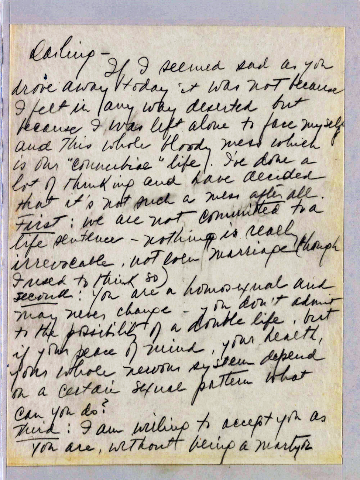 Darling -
If I seemed sad as you
drove away today it was not because
I felt in any way deserted but
because I was left alone to face myself
and this whole bloody mess which
is our "connubial" life. I've done a
lot of thinking and have decided
that it's not such a mess after all.
First: we are not committed to a
life sentence - nothing is really
irrevocable, not even marriage (though
I used to think so)
second: You are a homosexual and
may never change - you don't admit
to the possibility of a double life, but
if your peace of mind, your health,
your whole nervous system depend
on a certain sexual pattern what
can you do?
Third: I am willing to accept you as
you are, without being a martyr